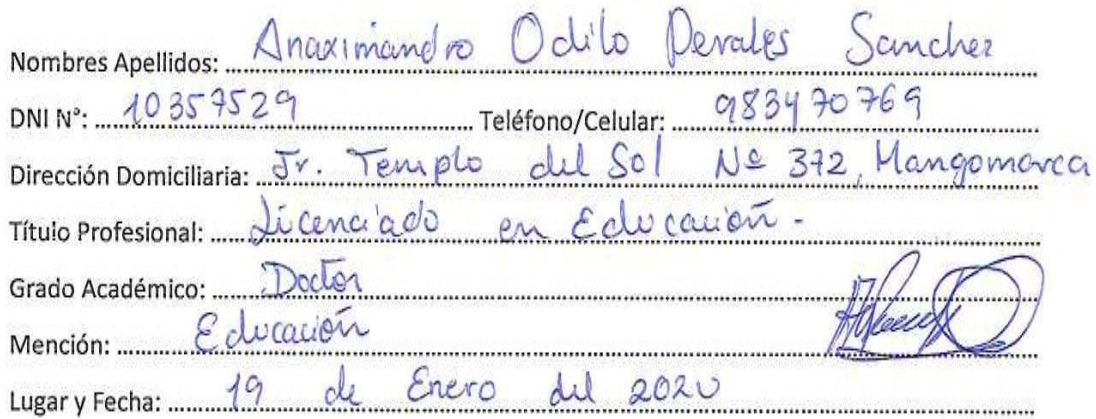 Nombres Apellidos: Anaximandro Odilo Perales Sanchez
DNI N°: 10357529 Teléfono/Celular: 983470769
Dirección Domiciliaria: Jr. Templo del Sol Nº 372, Mangomarca
Título Profesional: Licenciado en Educación -
Grado Académico: Doctor
Mención: Educación
Lugar y Fecha: 19 de Enero del 2020